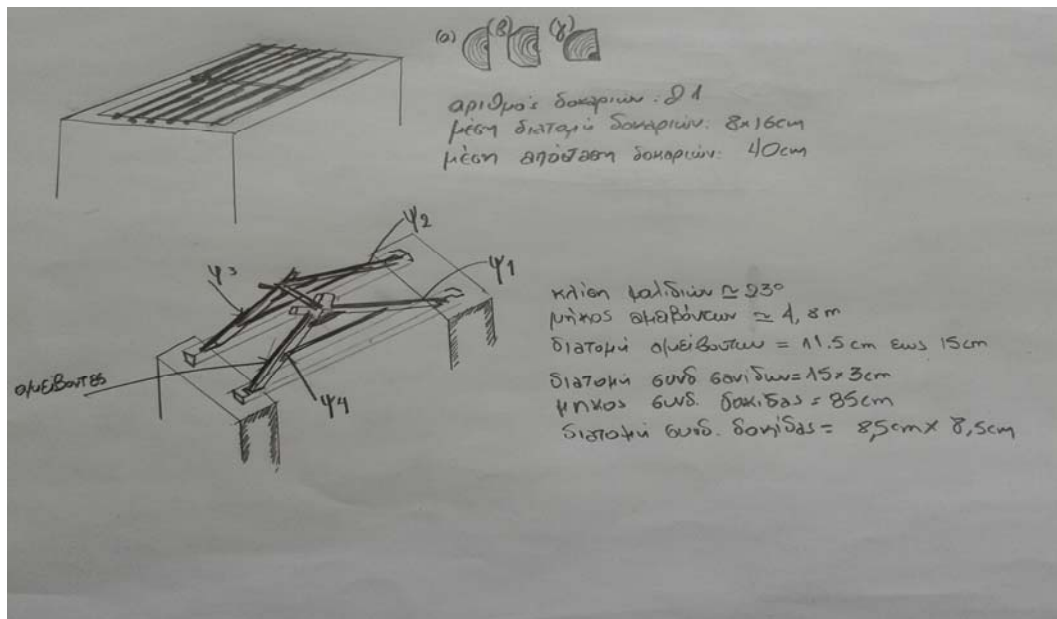 (α) (β) (γ)
αριθμός δοκαριών: 21
μέση διατομή δοκαριών: 8×16cm
μέση απόσταση δοκαριών: 40cm
ψ2
ψ1
ψ3
ψ4
αμείβοντες
κλίση ψαλιδιών ≃ 23°
μήκος αμειβόντων ≃ 4,8m
διατομή αμειβοντων = 11.5cm εως 15cm
διατομή συνδ σανίδων=15×3cm
μηκος συνδ. δοκίδας = 85cm
διατομή συνδ. δοκίδας = 8,5cm × 8,5cm